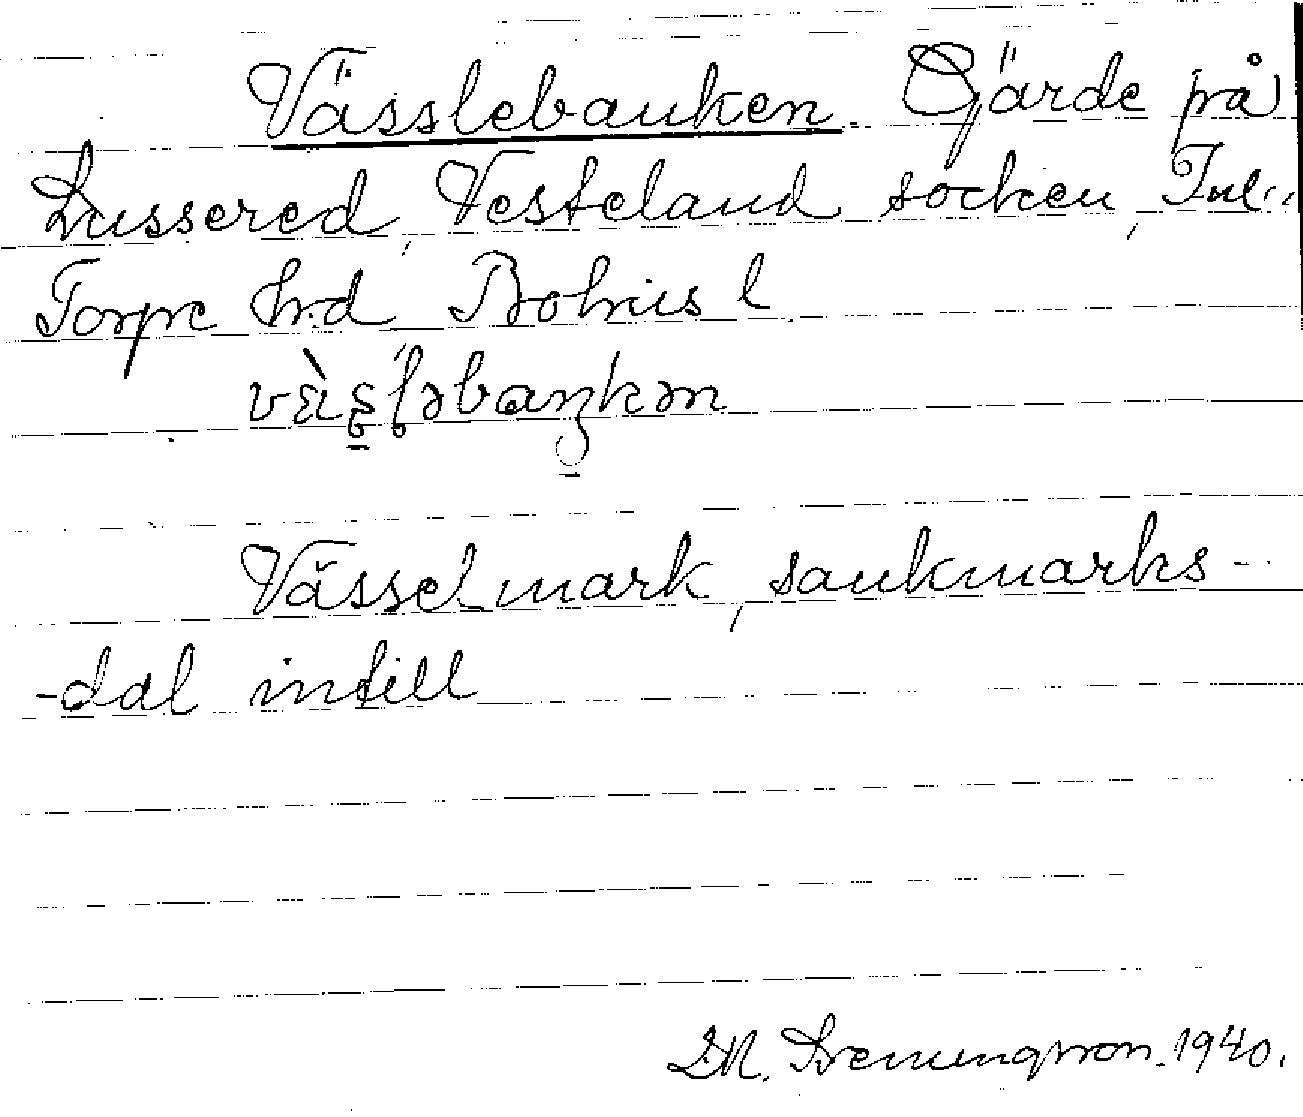 Vässlebanken. Gjärde på
Lussered, Vesteland socken, Inl.
Torpe hrd, Bohus l.
vässləbaŋkən
Vässelmark, sankmarks-
-dal intill
1940.